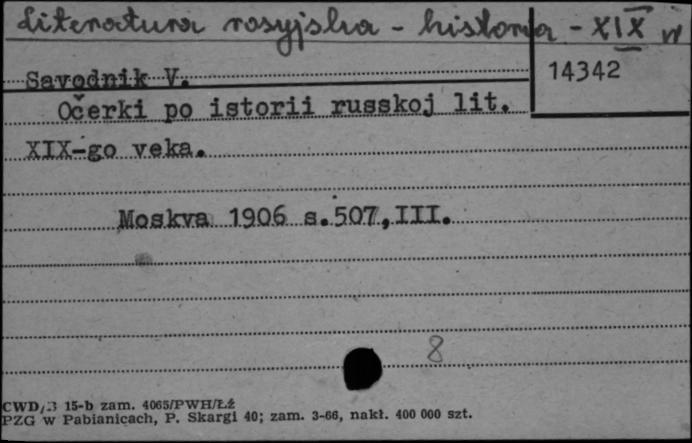 Literatura rosyjska - historia - XIX w
Savodnik V.
14342
Očerki po istorii russkoj lit.
XIX-go veka.
Moskva 1906 s.507,III.
8
CWD/3 15-b zam. 4065/PWH/Łź
PZG w Pabianicach, P. Skargi 40; zam. 3-66, nakł. 400 000 szt.